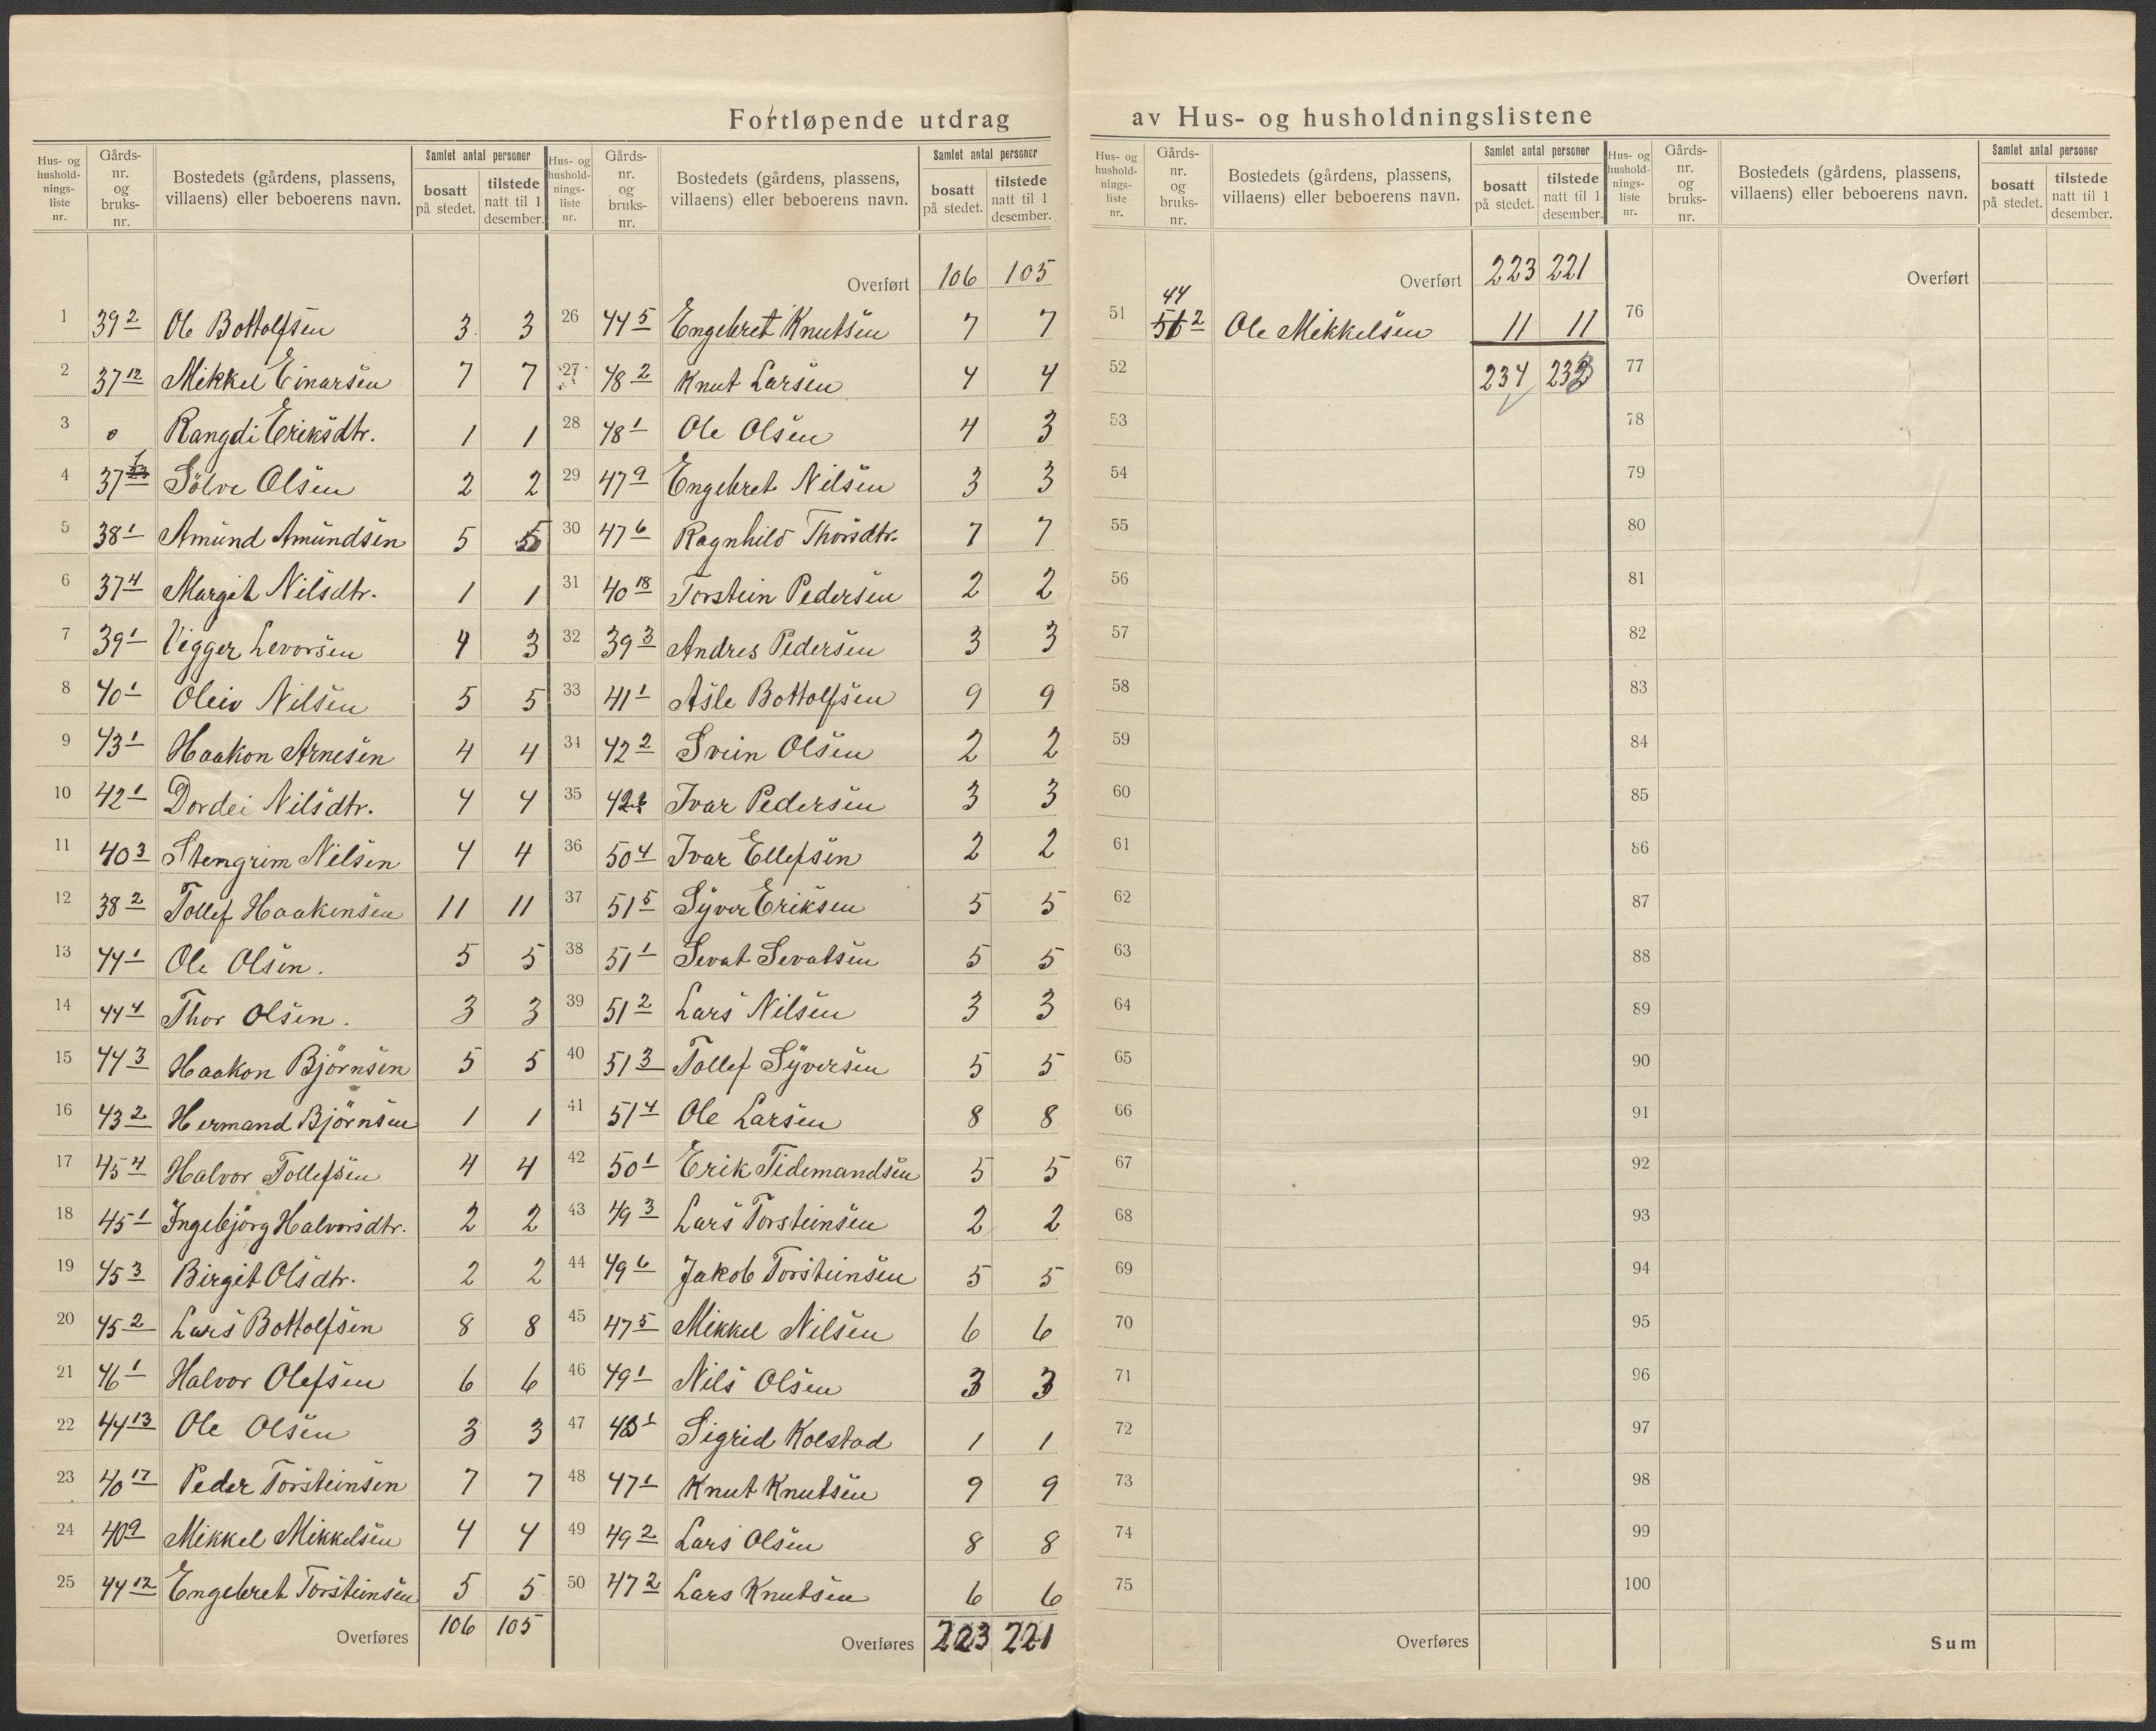 Fortløpende utdrag av Hus- og husholdningslistene
Hus- og husholdnings-liste nr. | Gårds-nr. og bruks-nr. | Bostedets (gårdens, plassens, villaens) eller beboerens navn. | Samlet antal personer | bosatt på stedet. | tilstede natt til 1 desember.
1 39 2 Ole Bottolfsen 3 3
2 37 12 Mikkel Einarsen 7 7
3 " Rangdi Eriksdtr. 1 1
4 37 1 Sölve Olsen 2 2
5 38 1 Amund Amundsen 5 5
6 37 4 Margit Nilsdtr. 1 1
7 39 1 Vigger Levorsen 4 3
8 40 1 Oleiv Nilsen 5 5
9 43 1 Haakon Arnesen 4 4
10 42 1 Dordei Nilsdtr. 4 4
11 40 3 Stengrim Nilsen 4 4
12 38 2 Tollef Haakensen 11 11
13 44 1 Ole Olsen. 5 5
14 44 4 Thor Olsen. 3 3
15 44 3 Haakon Björnsen 5 5
16 43 2 Hermand Björnsen 1 1
17 45 4 Halvor Tollefsen 4 4
18 45 1 Ingebjörg Halvorsdtr. 2 2
19 45 3 Birgit Olsdtr. 2 2
20 45 2 Lars Bottolfsen 8 8
21 46 1 Halvor Olefsen 6 6
22 44 13 Ole Olsen 3 3
23 40 17 Peder Torsteinsen 7 7
24 40 9 Mikkel Mikkelsen 4 4
25 44 12 Engebret Torsteinsen 5 5
Overføres 106 105
Hus- og husholdnings-liste nr. | Gårds-nr. og bruks-nr. | Bostedets (gårdens, plassens, villaens) eller beboerens navn. | Samlet antal personer | bosatt på stedet. | tilstede natt til 1 desember.
Overført 106 105
26 44 5 Engebret Knutsen 7 7
27 48 2 Knut Larsen 4 4
28 48 1 Ole Olsen 4 3
29 47 9 Engebret Nilsen 3 3
30 47 6 Ragnhild Thorsdtr. 7 7
31 40 18 Torstein Pedersen 2 2
32 39 3 Andres Pedersen 3 3
33 41 1 Asle Bottolfsen 9 9
34 42 2 Svein Olsen 2 2
35 42 Ivar Pedersen 3 3
36 50 4 Ivar Ellefsen 2 2
37 51 5 Syver Eriksen 5 5
38 51 1 Sevat Sevatsen 5 5
39 51 2 Lars Nilsen 3 3
40 51 3 Tollef Syversen 5 5
41 51 4 Ole Larsen 8 8
42 50 1 Erik Tidemandsen 5 5
43 49 3 Lars Torsteinsen 2 2
44 49 6 Jakob Torsteinsen 5 5
45 47 5 Mikkel Nilsen 6 6
46 49 1 Nils Olsen 3 3
47 1 Sigrid Kolstad 1 1
48 47 1 Knut Knutsen 9 9
49 49 2 Lars Olsen 8 8
50 47 2 Lars Knutsen 6 6
Overføres 223 221
Hus- og husholdnings-liste nr. | Gårds-nr. og bruks-nr. | Bostedets (gårdens, plassens, villaens) eller beboerens navn. | Samlet antal personer | bosatt på stedet. | tilstede natt til 1 desember.
Overført 223 221
51 44 2 Ole Mikkelsen 11 11
52 234 232
53
54
55
56
57
58
59
60
61
62
63
64
65
66
67
68
69
70
71
72
73
74
75
Overføres
Hus- og husholdnings-liste nr. | Gårds-nr. og bruks-nr. | Bostedets (gårdens, plassens, villaens) eller beboerens navn. | Samlet antal personer | bosatt på stedet. | tilstede natt til 1 desember.
Overført
76
77
78
79
80
81
82
83
84
85
86
87
88
89
90
91
92
93
94
95
96
97
98
99
100
Sum